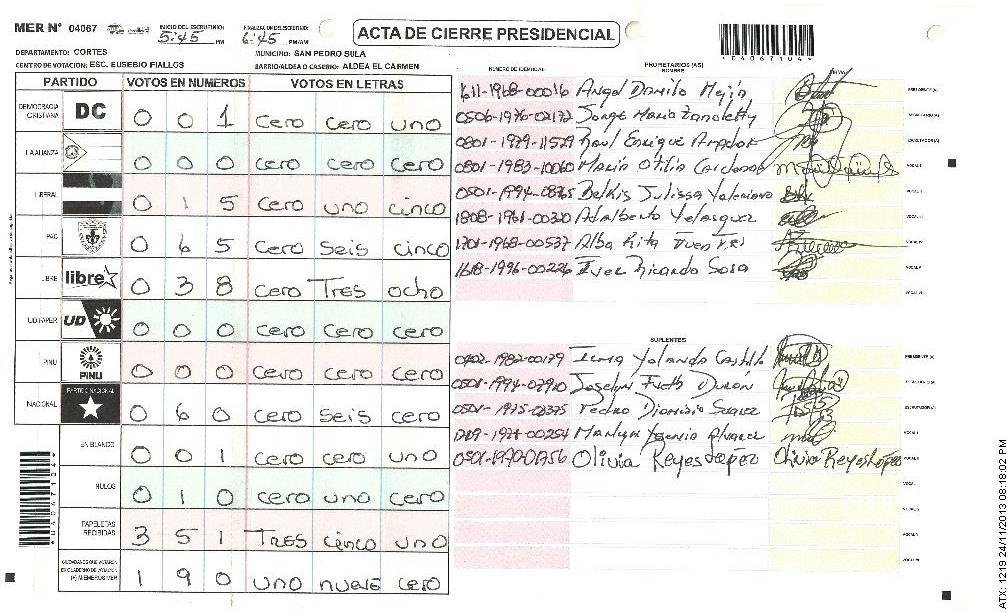 MER Nº 04067 INICIO DEL ESCRUTINIO: 5:45 PM FINALIZACION ESCRUTINIO: 6:45 PM/AM
ACTA DE CIERRE PRESIDENCIAL
*04067104*
DEPARTAMENTO: CORTES MUNICIPIO: SAN PEDRO SULA
CENTRO DE VOTACION: ESC. EUSEBIO FIALLOS BARRIO/ALDEA O CASERIO: ALDEA EL CARMEN
PARTIDO VOTOS EN NUMEROS VOTOS EN LETRAS
DEMOCRACIA CRISTIANA DC 0 0 1 cero cero uno
LA ALIANZA 0 0 0 cero cero cero
LIBERAL 0 1 5 cero uno cinco
PAC 0 6 5 cero seis cinco
LIBRE libre 0 3 8 cero Tres ocho
UD FAPER UD 0 0 0 cero cero cero
PINU PINU 0 0 0 cero cero cero
NACIONAL PARTIDO NACIONAL 0 6 0 cero seis cero
EN BLANCO 0 0 1 cero cero uno
NULOS 0 1 0 cero uno cero
PAPELETAS RECIBIDAS 3 5 1 Tres cinco uno
CIUDADANOS QUE VOTARON EN CUADERNO DE VOTACION (+) MIEMBROS MER 1 9 0 uno nueve cero
*04067104*
NUMERO DE IDENTIDAD PROPIETARIOS (AS) NOMBRE FIRMA
1611-1968-00016 Angel Danilo Mejia PRESIDENTE (A)
0506-1976-02172 Jorge Mario SECRETARIO (A)
0801-1979-11529 Raul Enrique Amador ESCRUTADOR (A)
0801-1983-10060 Maria Otilia Cardona VOCAL I
0501-1994- Belkis Julissa VOCAL II
1808-1961-00320 Adalberto Velasquez VOCAL III
1701-1968-00537 Alba Rita VOCAL IV
1618-1996-00226 Ricardo Sosa VOCAL V
VOCAL VI
SUPLENTES
0402-1982-00179 Irma Yolanda Castillo PRESIDENTE (A)
0501-1994-02910 Joselyn SECRETARIO (A)
0501-1975- Pedro Dionisio ESCRUTADOR (A)
Marlyn Alvarez VOCAL I
0501-1970-01756 Olivia Reyes Lopez Olivia Reyes López VOCAL II
ATX: 1219 24/11/2013 08:18:02 PM